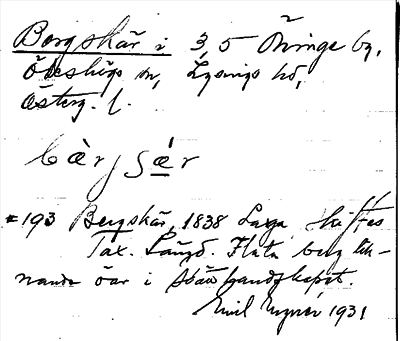 Bergskär i 3,5 Öninge by,
Ödeshögs sn, Lysings hd,
Österg. l.
bærʃæ̀r
*193 Bergskär, 1838 Laga skiftes
Tax. Längd. Flata berg lik-
nande öar i skärbandskapet.
Emil 1931